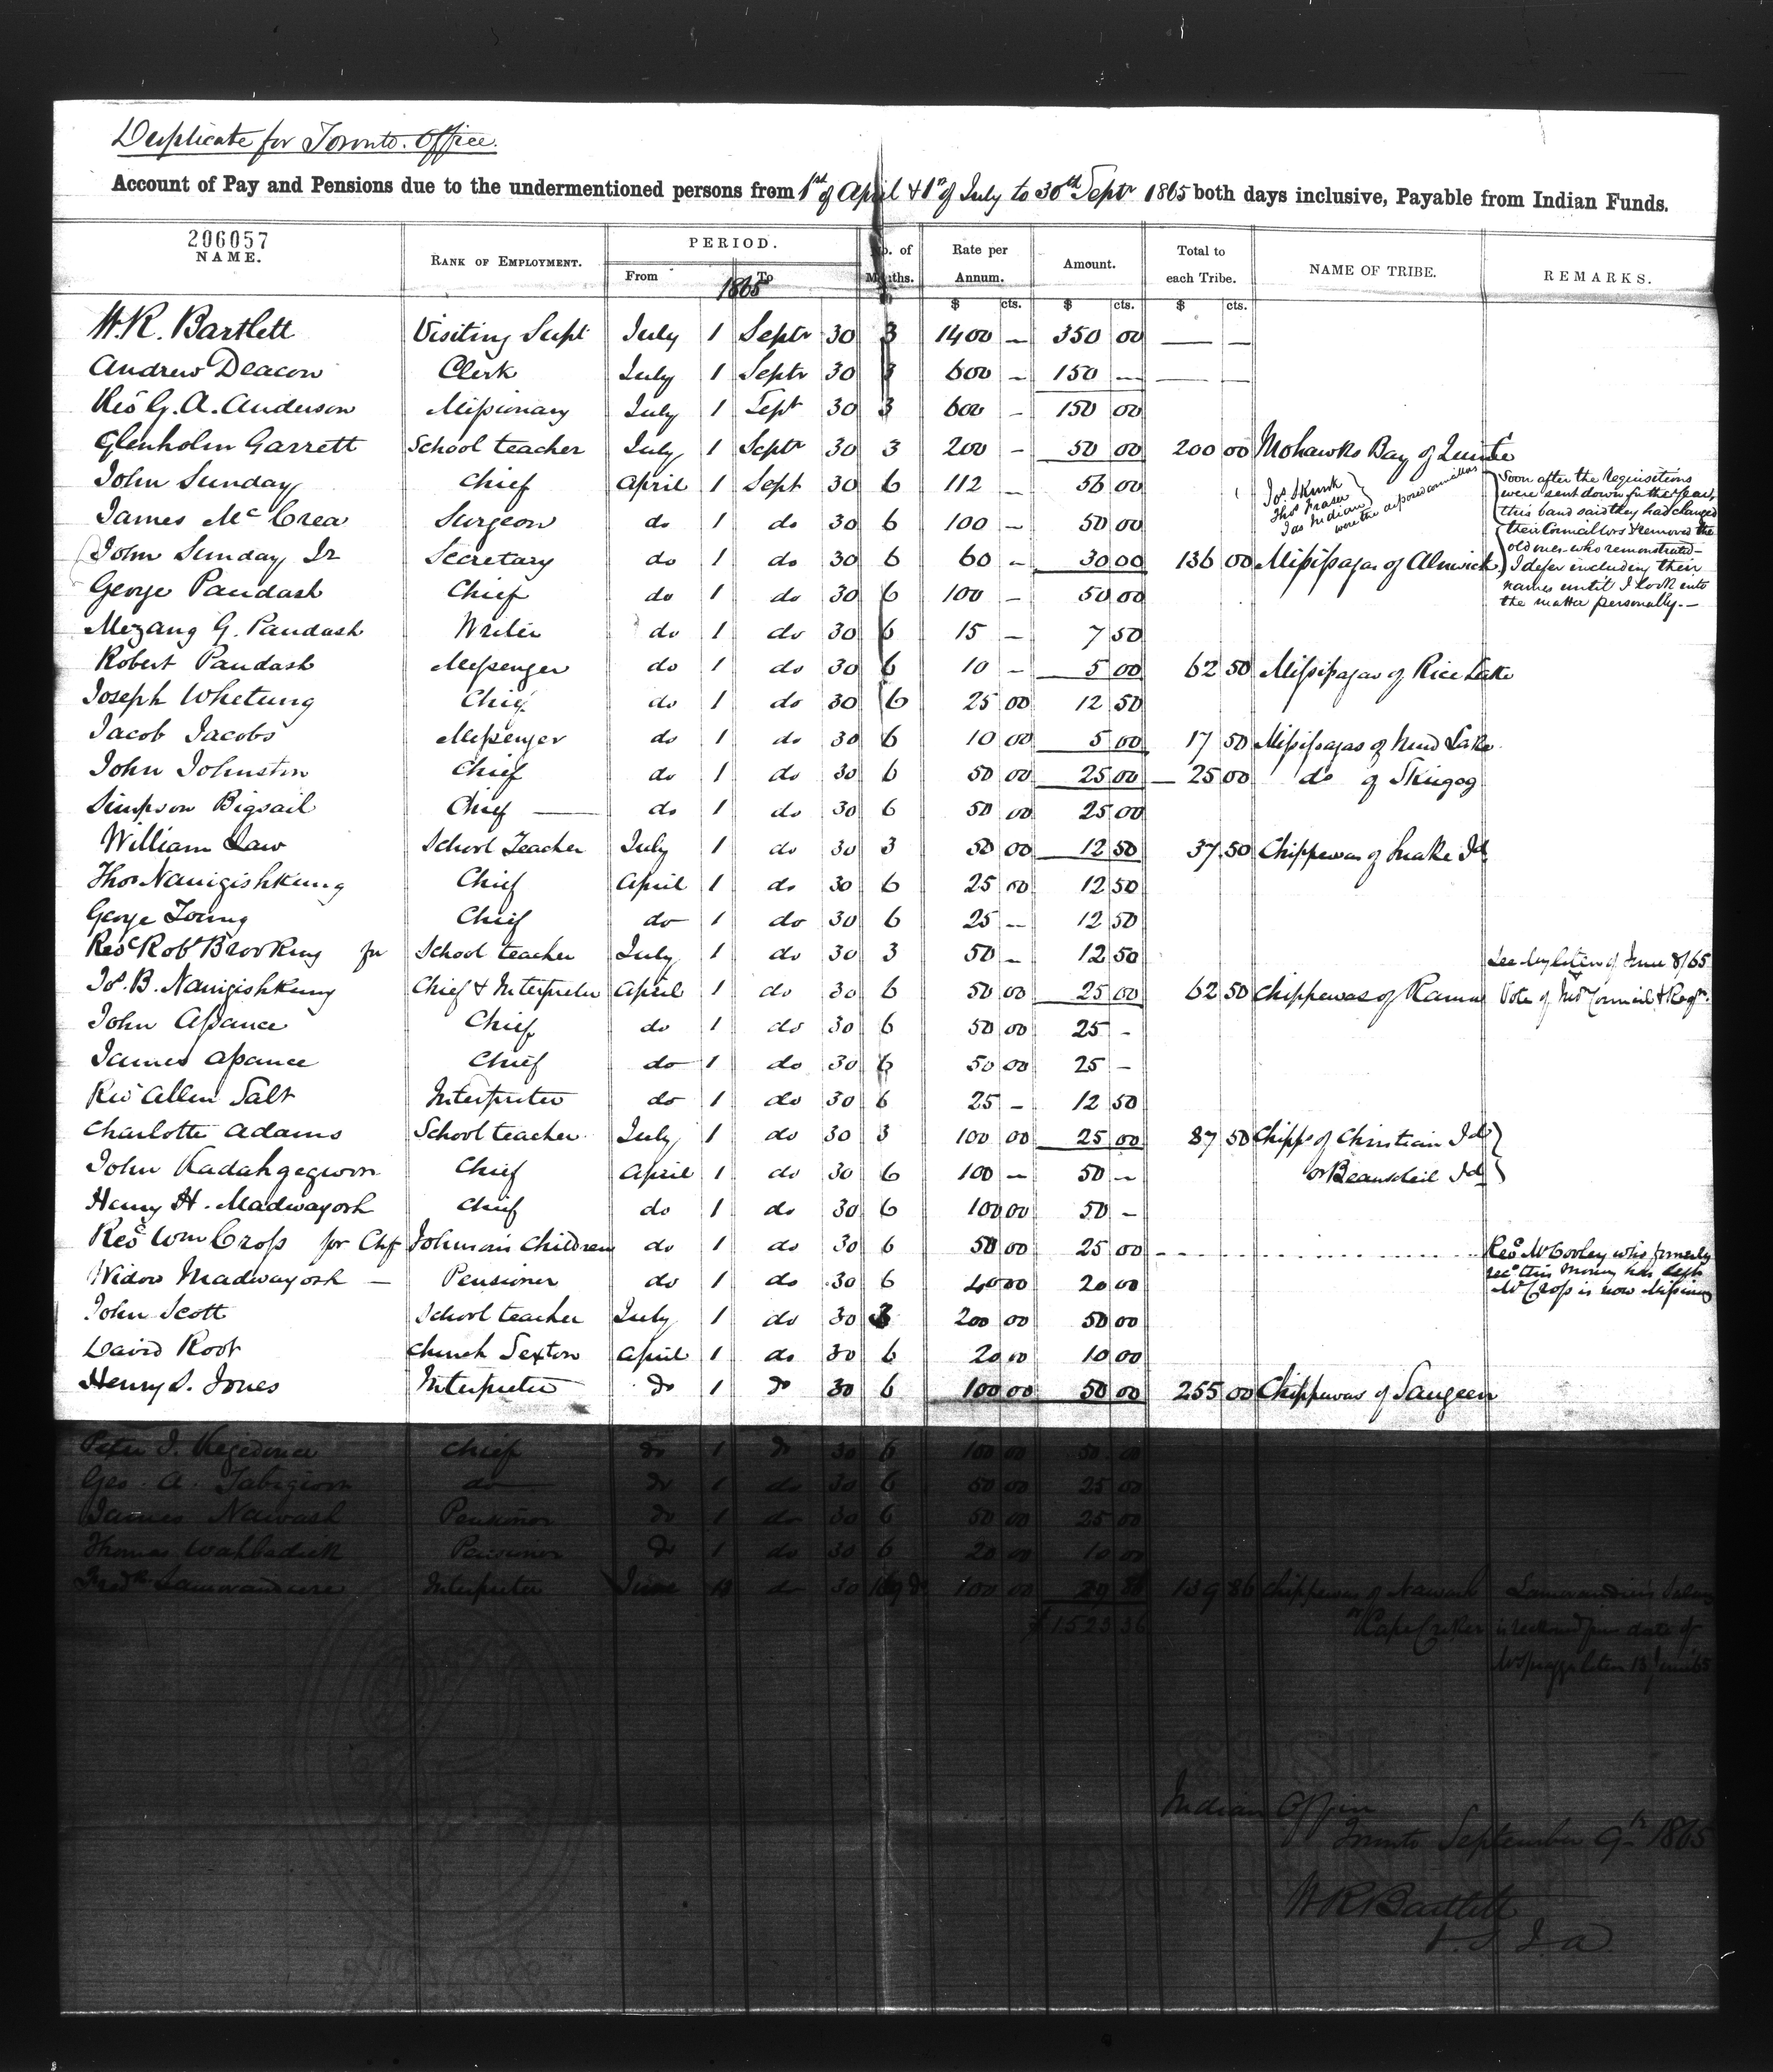 Duplicate for Toronto Office.
Account of Pay and Pensions due to the undermentioned persons from 1st of April & 1st of July to 30th Septr 1865 both days inclusive, Payable from Indian Funds.
206057
NAME. RANK OF EMPLOYMENT. PERIOD. No. of Months. Rate per Annum. Amount. Total to each Tribe. NAME OF TRIBE. REMARKS.
From 1865 To
$ cts. $ cts. $ cts.
W.R. Bartlett Visiting Supt July 1 Septr 30 3 1400 — 350 00 — —
Andrew Deacon Clerk July 1 Septr 30 3 600 — 150 — — —
Revd G. A. Anderson Missionary July 1 Sept 30 3 600 – 150 00
Glenholm Garrett School teacher July 1 Septr 30 3 200 – 50 00 200 00 Mohawks Bay of Quinte
John Sunday Chief April 1 Sept 30 6 112 – 56 00
James McCrea Surgeon do 1 do 30 6 100 – 50 00
Jos. Skunk
Thos Fraser
Jas Indian
were the deposed councillors
John Sunday Jr Secretary do 1 do 30 6 60 – 30 00 136 00 Missisagas of Alnwick
Soon after the Requisitions
were sent down for the year,
this band said they had changed
their Councillors & removed the
old ones who remonstrated –
I defer including their
names until I look into
the matter personally. –
George Paudash Chief do 1 do 30 6 100 – 50 00
Mezang G. Paudash Writer do 1 do 30 6 15 – 7 50
Robert Paudash Messenger do 1 do 30 6 10 – 5 00 62 50 Missisagas of Rice Lake
Joseph Whetung Chief do 1 do 30 6 25 00 12 50
Jacob Jacobs Messenger do 1 do 30 6 10 00 5 00 17 50 Missisagas of Mud Lake
John Johnston Chief do 1 do 30 6 50 00 25 00 — 25 00 do of Skugog
Simpson Bigsail Chief — do 1 do 30 6 50 00 25 00
William Law School Teacher July 1 do 30 3 50 00 12 50 37 50 Chippewas of Snake Id
Thos Nanigishkung Chief April 1 do 30 6 25 00 12 50
George Young Chief do 1 do 30 6 25 -- 12 50
Revd Robt Brooking for School teacher July 1 do 30 3 50 – 12 50 See my letter of June 8/65
Js. B. Nanigishkung Chief & Interpreter April 1 do 30 6 50 00 25 00 62 50 Chippewas of Rama Vote of Ind Council & Reqn.
John Assance Chief do 1 do 30 6 50 00 25 –
James Assance Chief do 1 do 30 6 50 00 25 –
Revd Allen Salt Interpreter do 1 do 30 6 25 – 12 50
Charlotte Adams School teacher July 1 do 30 3 100 00 25 00 87 50 Chipps of Christian Id
John Kadahgegwon Chief April 1 do 30 6 100 – 50 – or Beausoleil Id
Henry H. Madwayosh Chief do 1 do 30 6 100 00 50 –
Revd Wm Cross for Chf Johnson's Children do 1 do 30 6 50 00 25 00 Revd Mr Cooley who formerly
recd this money has left
Mr Cross is now Missiony
Widow Madwayosh — Pensioner do 1 do 30 6 40 00 20 00
John Scott School teacher July 1 do 30 3 200 00 50 00
David Root Church Sexton April 1 do 30 6 20 00 10 00
Henry S. Jones Interpreter do 1 do 30 6 100 00 50 00 255 00 Chippewas of Saugeen
Peter J. Kegedonce Chief do 1 do 30 6 100 00 50 00
Geo. A. Tabegion do do 1 do 30 6 50 00 25 00
James Nawash Pensioner do 1 do 30 6 50 00 25 00
Thomas Wahbadick Pensioner do 1 do 30 6 20 00 10 00
Fredk Lamorandiere Interpreter June do 30 100 00 29 86 139 86 Chippewas of Nawash Lamorandiere's Salary
$1523 36 Cape Croker is reckoned from date of
Mr Spragge's letter 13 June 65
Indian Office
Toronto September 9th 1865
W R Bartlett
V. S. I. a